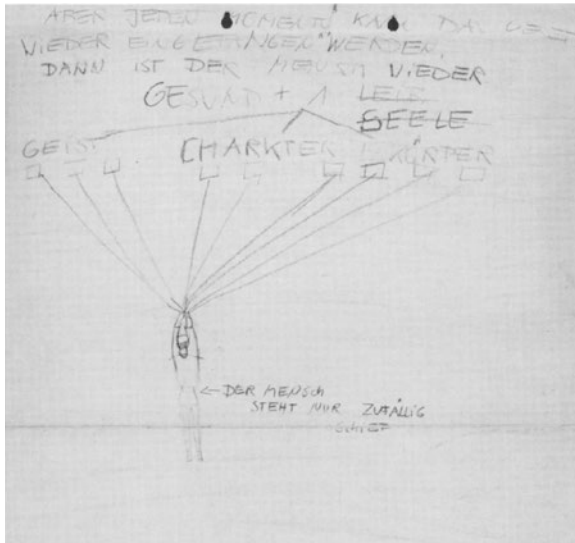 ABER JETEN MOMENT KNN DAS
WIEDER EINGEFANGEN WERDEN.
DANN IST DER MENSCH WIEDER
GESUND + 1 LEIB
SEELE
GEIST CHARKTER KÖRPER
← DER MENSCH
STEHT NUR ZUFÄLLIG
SCHIEF